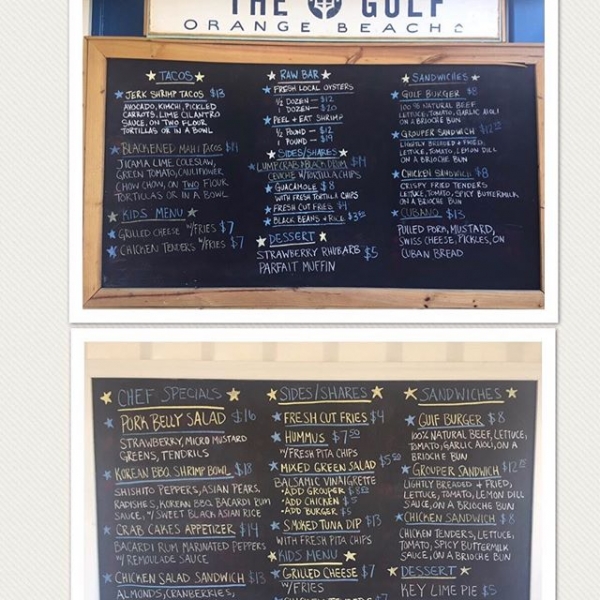 THE GULF
ORANGE BEACH
TACOS
JERK SHRIMP TACOS $13
AVOCADO, KIMCHI, PICKLED
CARROTS, LIME CILANTRO
SAUCE, ON TWO FLOUR
TORTILLAS OR IN A BOWL
BLACKENED MAHI TACOS $14
JICAMA LIME COLESLAW,
GREEN TOMATO, CAULIFLOWER
CHOW CHOW, ON TWO FLOUR
TORTILLAS OR IN A BOWL
KIDS MENU
GRILLED CHEESE W/FRIES $7
CHICKEN TENDERS W/FRIES $7
RAW BAR
FRESH LOCAL OYSTERS
1/2 DOZEN — $12
1 DOZEN — $20
PEEL + EAT SHRIMP
1/2 POUND — $12
1 POUND — $19
SIDES/SHARES
LUMP CRAB + BLACK DRUM $14
CEVICHE W/TORTILLA CHIPS
GUACAMOLE $8
WITH FRESH TORTILLA CHIPS
FRESH CUT FRIES $4
BLACK BEANS + RICE
DESSERT
STRAWBERRY RHUBARB $5
PARFAIT MUFFIN
SANDWICHES
GULF BURGER $8
100% NATURAL BEEF
LETTUCE, TOMATO, GARLIC AIOLI
ON A BRIOCHE BUN
GROUPER SANDWICH
LIGHTLY BREADED + FRIED,
LETTUCE, TOMATO, LEMON DILL
ON A BRIOCHE BUN
CHICKEN SANDWICH $8
CRISPY FRIED TENDERS
LETTUCE, TOMATO, SPICY BUTTERMILK
ON A BRIOCHE BUN
CUBANO $13
PULLED PORK, MUSTARD,
SWISS CHEESE, PICKLES, ON
CUBAN BREAD
CHEF SPECIALS
PORK BELLY SALAD $16
STRAWBERRY, MICRO MUSTARD
GREENS, TENDRILS
KOREAN BBQ SHRIMP BOWL $18
SHISHITO PEPPERS, ASIAN PEARS,
RADISHES, KOREAN BBQ, BACARDI RUM
SAUCE, W/ SWEET BLACK ASIAN RICE
CRAB CAKES APPETIZER $14
BACARDI RUM MARINATED PEPPERS
W/ REMOULADE SAUCE
CHICKEN SALAD SANDWICH $13
ALMONDS, CRANBERRIES,
SIDES/SHARES
FRESH CUT FRIES $4
HUMMUS $7.50
W/FRESH PITA CHIPS
MIXED GREEN SALAD $5.50
BALSAMIC VINAIGRETTE
+ADD GROUPER
+ADD CHICKEN $5
+ADD BURGER $5
SMOKED TUNA DIP $13
WITH FRESH PITA CHIPS
KIDS MENU
GRILLED CHEESE $7
W/FRIES
CHICKEN TENDERS $7
SANDWICHES
GULF BURGER $8
100% NATURAL BEEF, LETTUCE,
TOMATO, GARLIC AIOLI, ON A
BRIOCHE BUN
GROUPER SANDWICH
LIGHTLY BREADED + FRIED,
LETTUCE, TOMATO, LEMON DILL
SAUCE, ON A BRIOCHE BUN
CHICKEN SANDWICH $8
CHICKEN TENDERS, LETTUCE,
TOMATO, SPICY BUTTERMILK
SAUCE, ON A BRIOCHE BUN
DESSERT
KEY LIME PIE $5